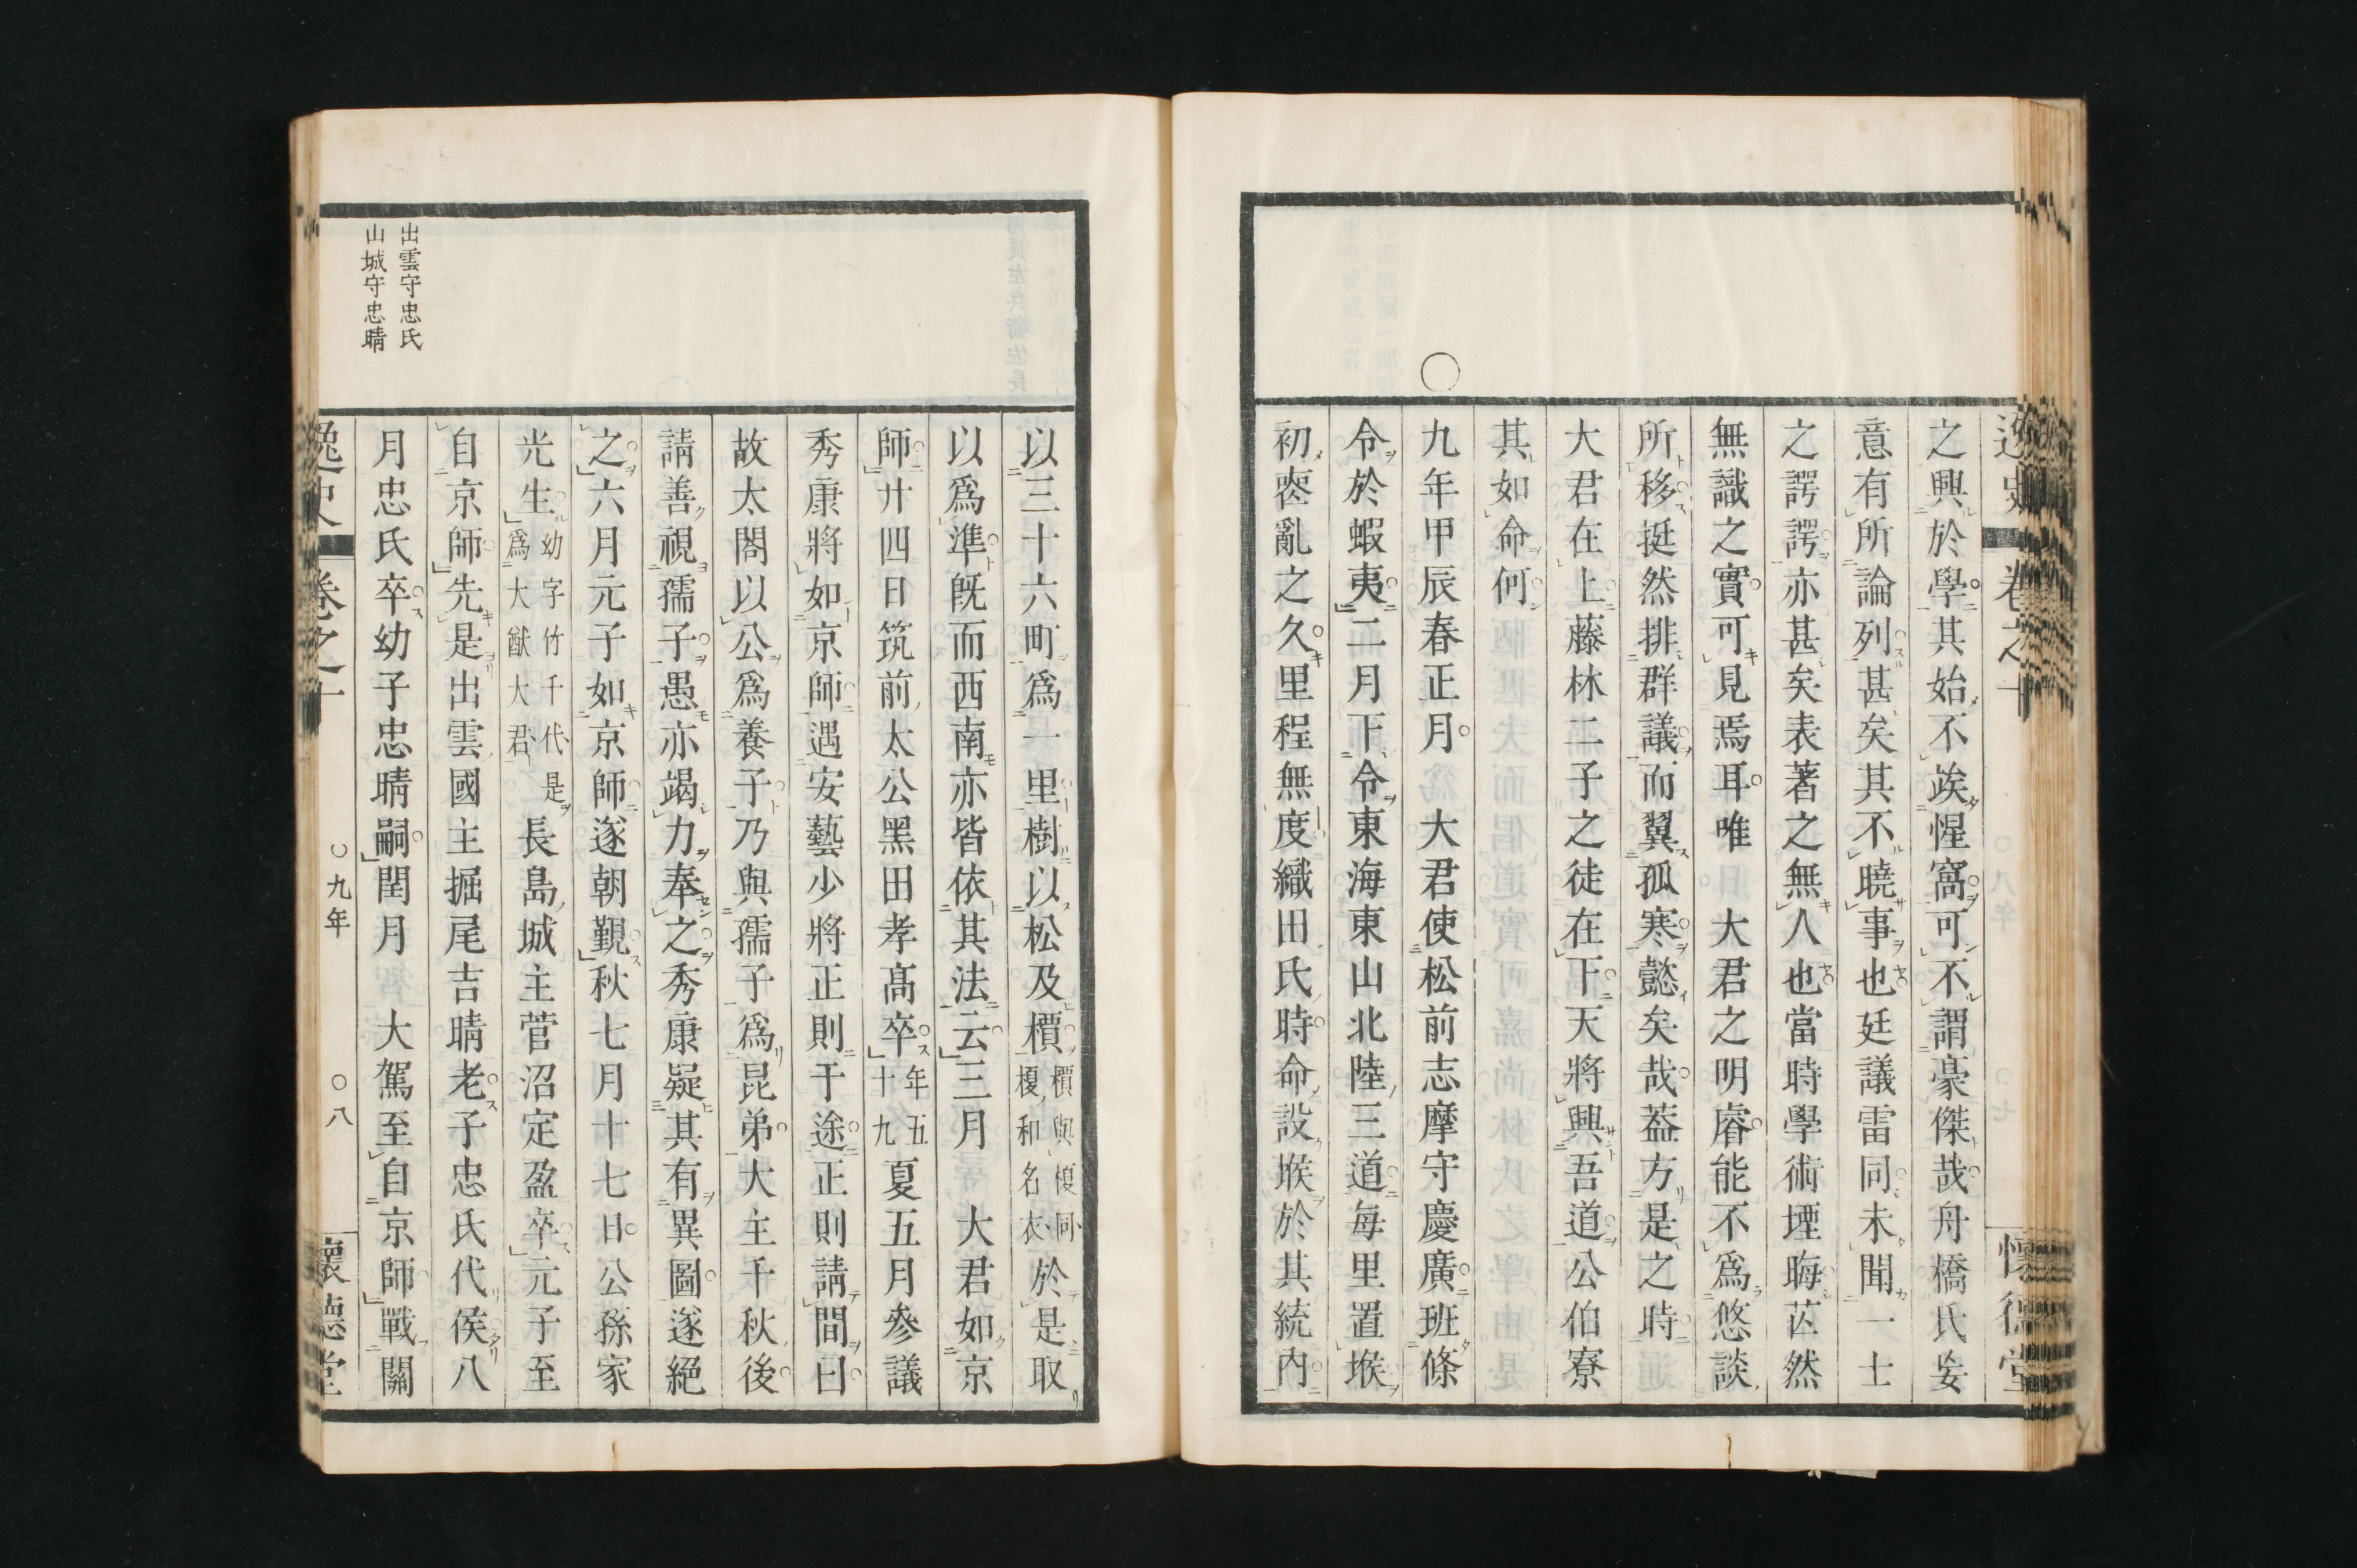 逸史 卷之十 懷德堂
之興於學其始不踐惺窩可不謂豪傑哉舟橋氏妄
意有所論列甚矣其不曉事也廷議雷同未聞一士
之諤諤亦甚矣表著之無人也當時學術堙晦茫然
無識之實可見焉耳唯 大君之明睿能不爲悠談
所移挺然排群議而翼孤寒懿矣哉葢方是之時
大君在上藤林二子之徒在下天將興吾道公伯寮
其如命何
○
九年甲辰春正月 大君使松前志摩守慶廣班條
令於蝦夷二月下令東海東山北陸三道每里置堠
初喪亂之久里程無度織田氏時命設堠於其統內
以三十六町爲一里樹以松及檟檟與榎同榎和名衣於是取
以爲準既而西南亦皆依其法云三月 大君如京
師廿四日筑前太公黑田孝高卒年五十九夏五月參議
秀康將如京師遇安藝少將正則于途正則請間曰
故太閤以公爲養子乃與孺子爲昆弟大主千秋後
請善視孺子愚亦竭力奉之秀康疑其有異圖遂絕
之六月元子如京師遂朝覲秋七月十七日公孫家
光生幼字竹千代是爲大猷大君長島城主菅沼定盈卒元子至
自京師先是出雲國主掘尾吉晴老子忠氏代侯八
月忠氏卒幼子忠晴嗣閏月 大駕至自京師戰關
出雲守忠氏
山城守忠晴
逸史 卷之十 ○九年 ○八 懷德堂